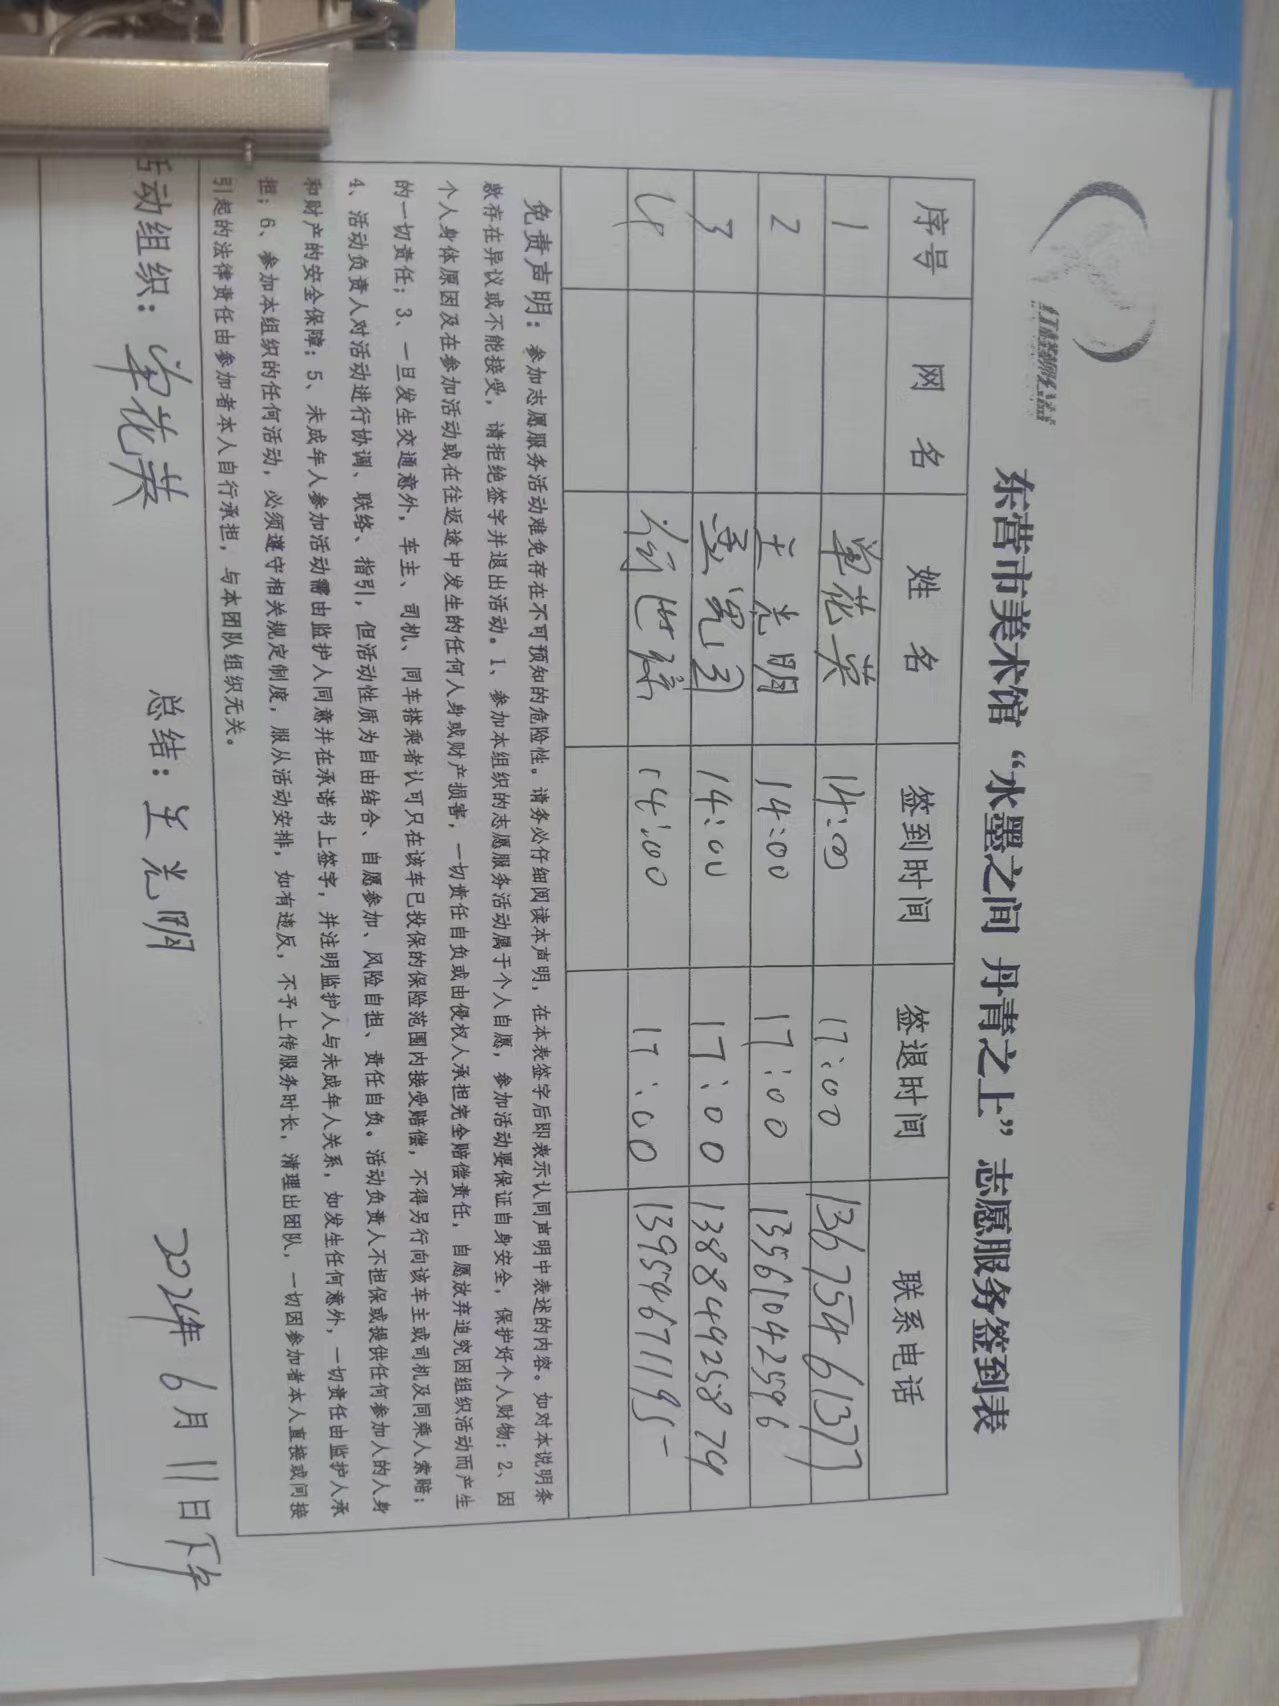 东营市美术馆“水墨之间 丹青之上”志愿服务签到表
序号 网 名 姓 名 签到时间 签退时间 联系电话
1 单花英 14:00 17:00 13675461373
2 王光明 14:00 17:00 13561042596
3 14:00 17:00 13884925879
4 徐世 14:00 17:00 13954671195
免责声明：参加志愿服务活动难免存在不可预知的危险性。请务必仔细阅读本声明，在本表签字后即表示认同声明中表述的内容。如对本说明条
款存在异议或不能接受，请拒绝签字并退出活动。1、参加本组织的志愿服务活动属于个人自愿，参加活动要保证自身安全，保护好个人财物；2、因
个人身体原因及在参加活动或在往返途中发生的任何人身或财产损害，一切责任自负或由侵权人承担完全赔偿责任，自愿放弃追究因组织活动而产生
的一切责任；3、一旦发生交通意外，车主、司机、同车搭乘者认可只在该车已投保的保险范围内接受赔偿，不得另行向该车主或司机及同乘人索赔；
4、活动负责人对活动进行协调、联络、指引，但活动性质为自由结合、自愿参加、风险自担、责任自负。活动负责人不担保或提供任何参加人的人身
和财产的安全保障；5、未成年人参加活动需由监护人同意并在承诺书上签字，并注明监护人与未成年人关系，如发生任何意外，一切责任由监护人承
担；6、参加本组织的任何活动，必须遵守相关规定制度，服从活动安排，如有违反，不予上传服务时长，清理出团队，一切因参加者本人直接或间接
引起的法律责任由参加者本人自行承担，与本团队组织无关。
活动组织：单花英 总结：王光明 2024年6月11日下午